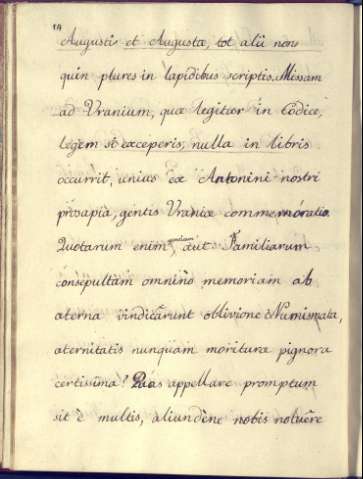 14
Augustis et Augusta, tot alii nons
quin plures in lapidibus scriptis. Missam
ad Uranium, quæ legitur in Codice,
legem si exceperis, nulla in libris
occurrit, unius ex Antonini nostri
prosapia, gentis Uraniæ commemoratio.
Quotarum enim aut Familiarum
consepultam omnino memoriam ab
æterna vindicarunt oblivione Numismata,
æternitatis nunquam morituræ pignora
certissima! Quas appellare promptum
sit è multis, aliundène nobis notuêre